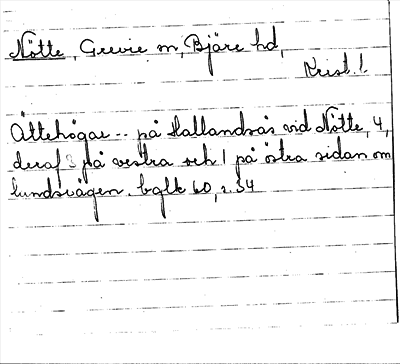 Nötte, Grevie sn, Bjäre hd,
Krist. l.
Ättehögar -- på Hallandsås vid Nötte, 4,
deraf 3 på vestra och 1 på östra sidan om
lundsvägen. bglk 60, s. 34